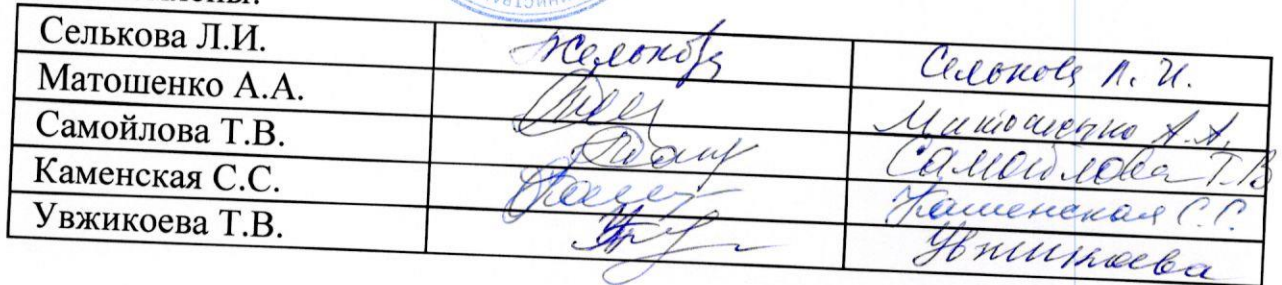 Селькова Л.И. Селькова Л. И.
Матошенко А.А. Матошенко А.А.
Самойлова Т.В. Самойлова Т.В
Каменская С.С. Каменская С.С.
Увжикоева Т.В. Увжикоева